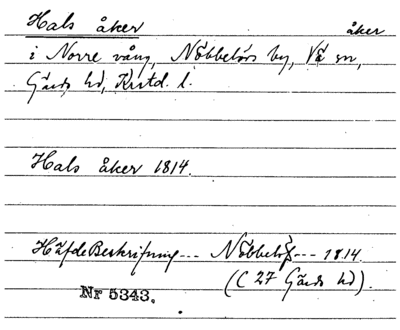 Hals åker åker
i Norre vång, Nöbbelövs by, Vä sn,
Gärds hd, Kristd. l.
Hals åker 1814.
HäfdeBeskrifning --- Nöbbelöf --- 1814.
(C 27 Gärds hd).
Nr 5343.